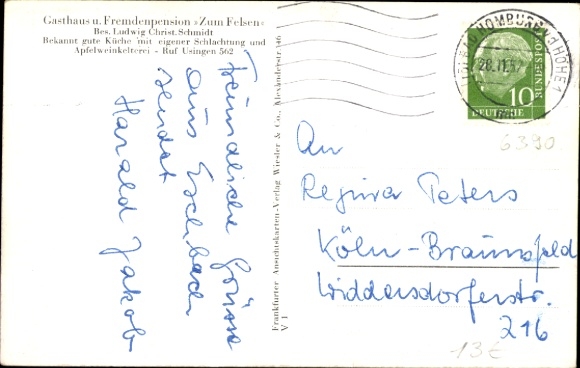 Gasthaus u. Fremdenpension »Zum Felsen«
Bes. Ludwig Christ. Schmidt
Bekannt gute Küche mit eigener Schlachtung und
Apfelweinkelterei - Ruf Usingen 562
Freundliche Grüsse
aus Eschbach
sendet
Harald Jakob
Frankfurter Ansichtskarten-Verlag Wiesler & Co., Mexlanderstr. 346
V 1
BAD HOMBURG v d HÖHE 1
10
DEUTSCHE
BUNDESPOST
6390
An
Regina Peters
Köln-Braunsfeld
Widdersdorferstr.
216
13€